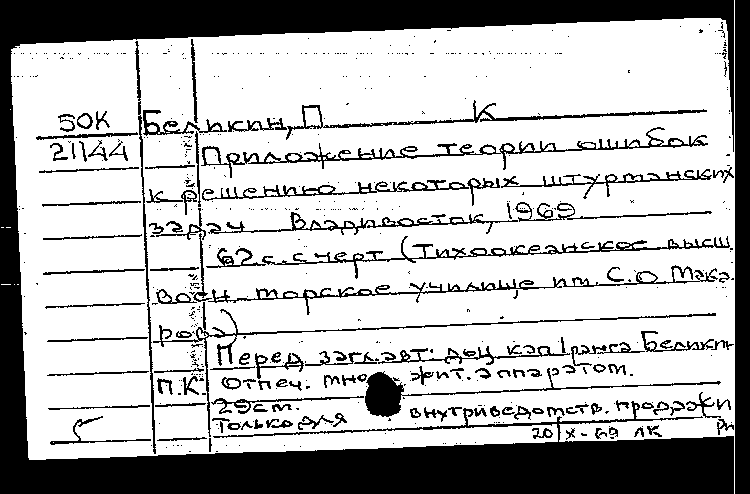 50К Беликин, П К
21144 Приложение теории ошибок
к решению некоторых штурманских
задач Владивосток, 1969
62 с. с черт (Тихоокеанское высш
воен.-морское училище им. С.О Мака
рова)
Перед загл. авт: доц кап 1 ранга Беликин
П.К Отпеч. множит. аппаратом.
29 см.
Только для внутриведомств. продажи
20/X-69 ЛК